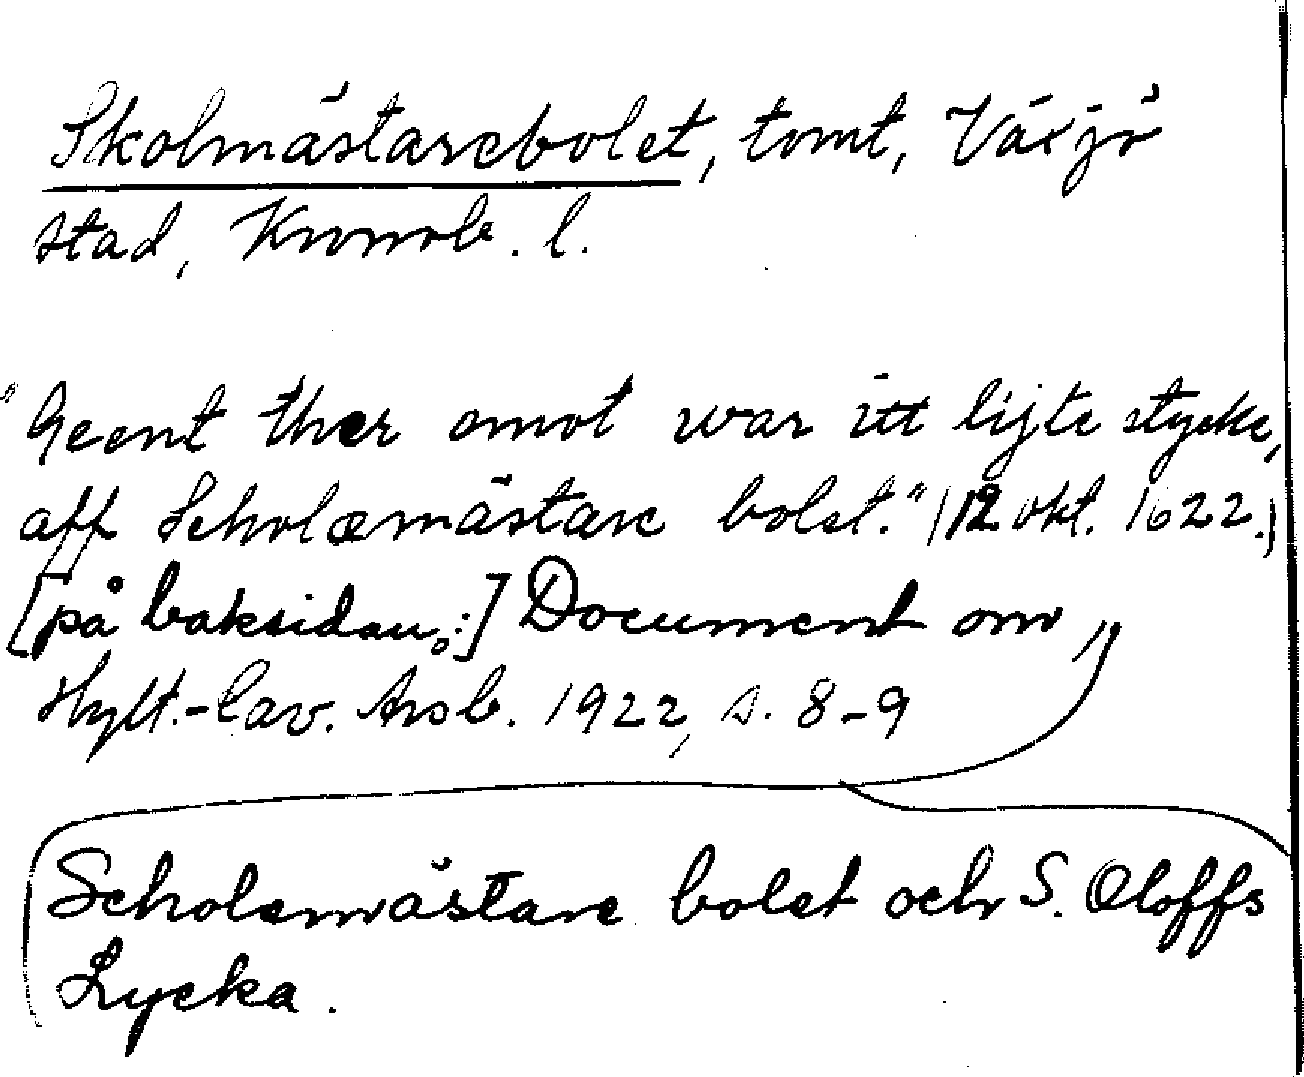 Skolmästarebolet, tomt, Växjö
stad, Kronob. l.
"Geent ther emot war itt lijte stycke,
aff Scholæmästare bolet." (12 okt. 1622.)
[på baksidan:] Document om
Hylt.-Cav. Årsb. 1922, s. 8-9
Scholæmästare bolet och S. Oloffs
Lycka.